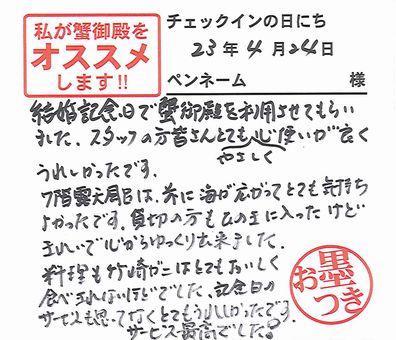 私が蟹御殿を
オススメ
します!!
チェックインの日にち
23年4月24日
ペンネーム 様
結婚記念日で蟹御殿を利用させてもらい
ました。スタッフの方皆さんとても心使いが良く
やさしく
うれしかったです。
7階露天風呂は、前に海が広がってとても気持ち
よかったです。貸切の方もひのきに入ったけど
きれいで心からゆっくり出来ました。
料理も竹崎ガニはとてもおいしく
食べきれないほどでした。記念日の
サービスも思ってなくとてもうれしかったです。
サービス最高でした。
お墨つき